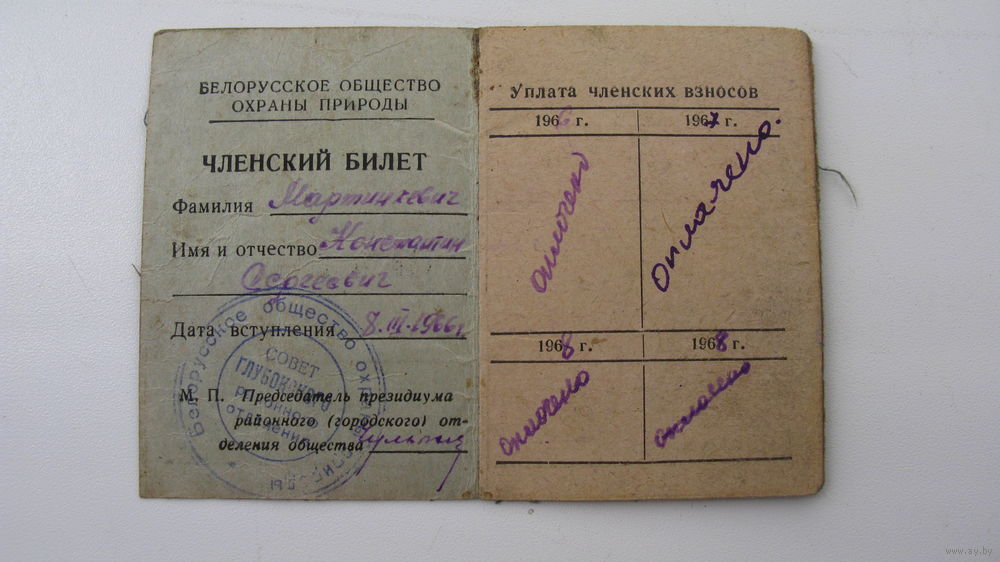 БЕЛОРУССКОЕ ОБЩЕСТВО
ОХРАНЫ ПРИРОДЫ
ЧЛЕНСКИЙ БИЛЕТ
Фамилия Мартинкевич
Имя и отчество Константин
Сергеевич
Дата вступления 8.III-1966г
М. П. Председатель президиума
районного (городского) от-
деления общества
Белорусское общество охраны природы
СОВЕТ
ГЛУБОКСКОГО
районного
отделения
Уплата членских взносов
1966 г. 1967 г.
оплочено оплачено.
1968 г. 1968 г.
оплочено оплочено
www.ay.by